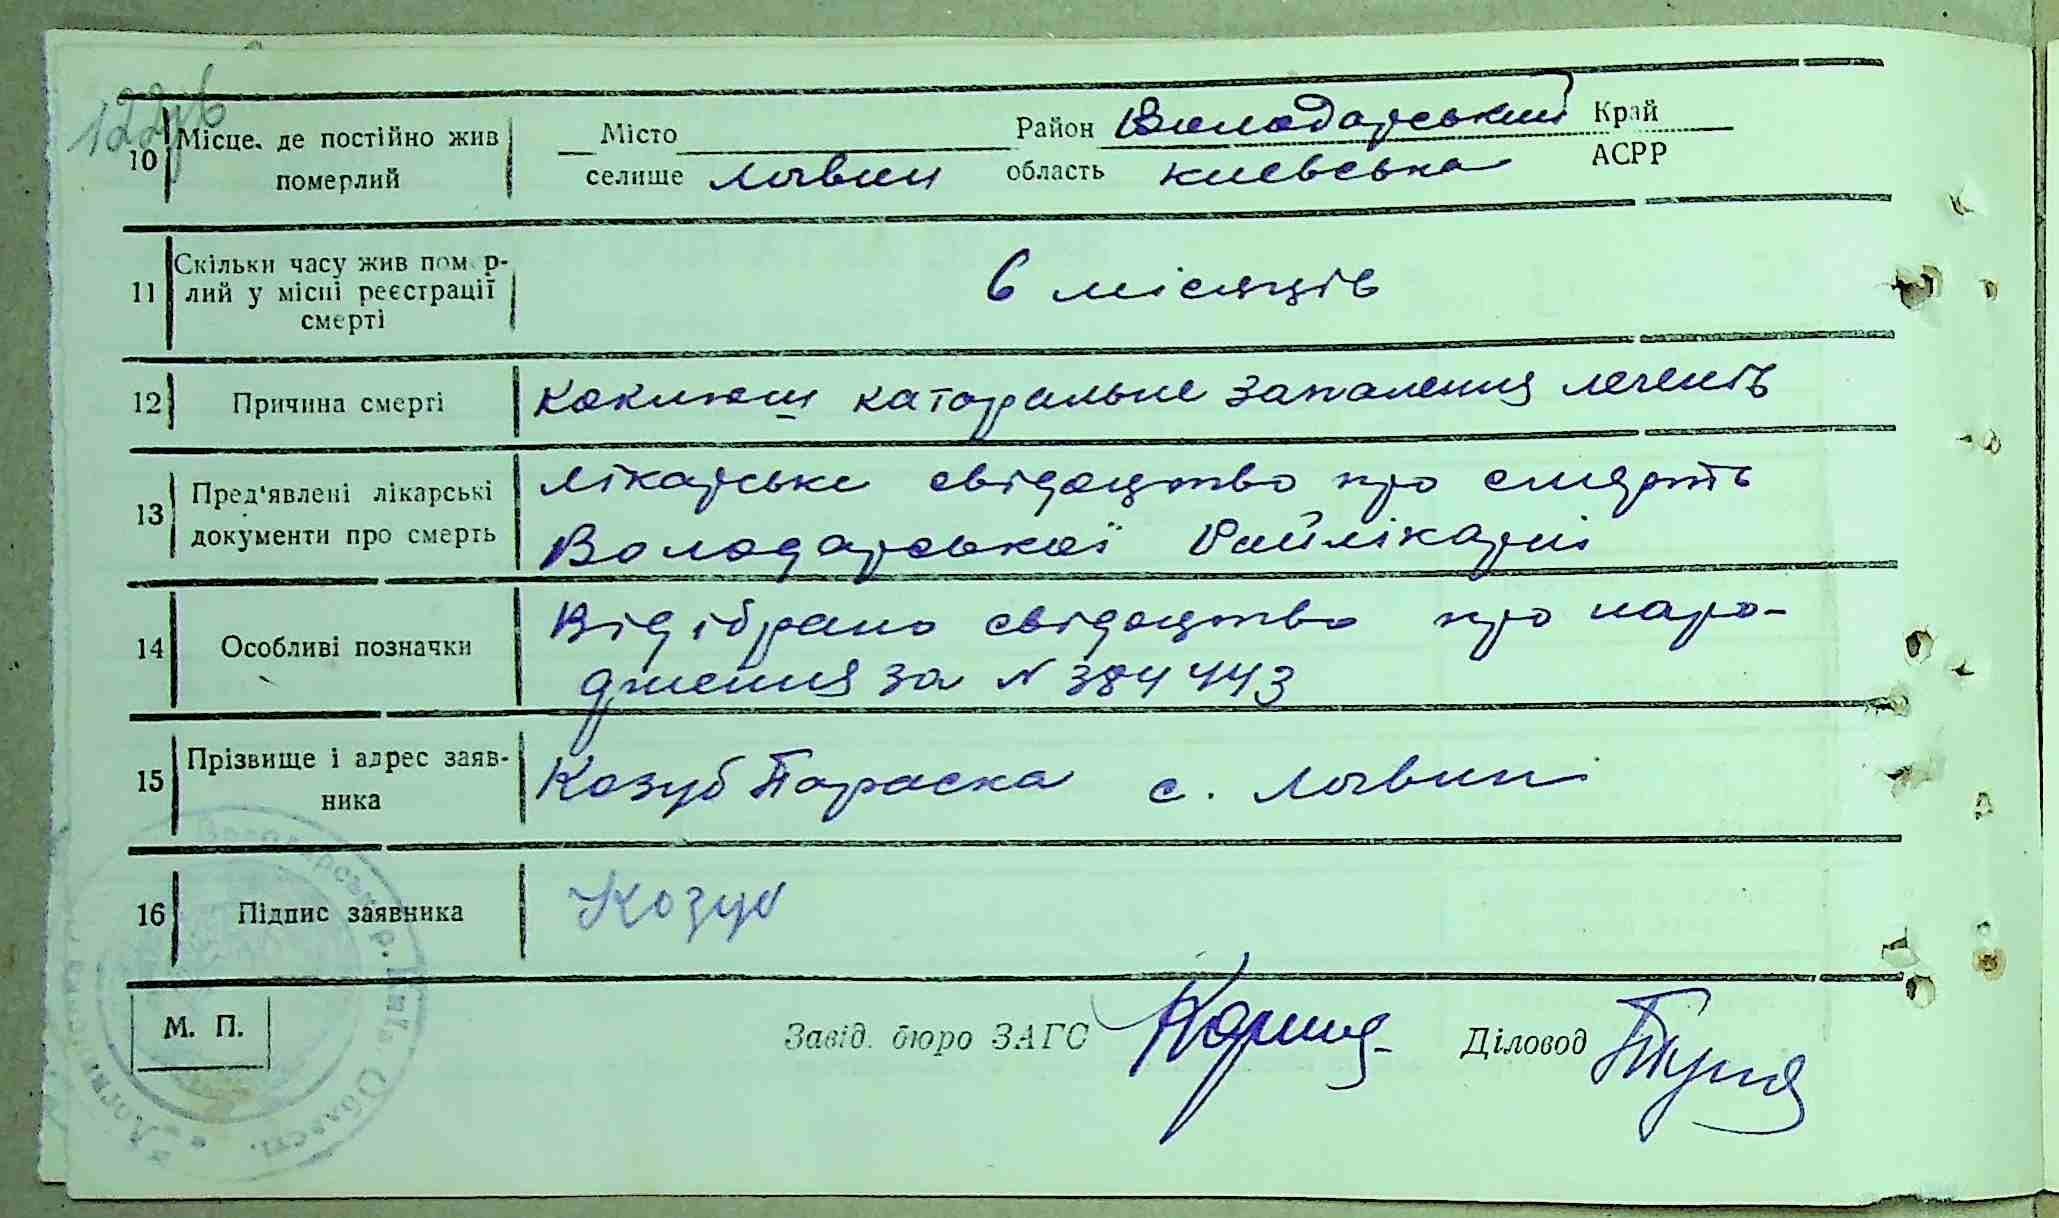 122
10 Місце, де постійно жив Місто Район Володарський Край
померлий селище Логвин область київська АСРР
11 Скільки часу жив помер-
лий у місці реєстрації 6 місяців
смерті
12 Причина смерті коклюш катаральне запалення легенів
13 Пред'явлені лікарські лікарське свідоцтво про смерть
документи про смерть Володарської Райлікарні
14 Особливі позначки Відібрано свідоцтво про наро-
дження за N 384443
15 Прізвище і адрес заяв- Козуб Параска с. Логвин
ника
16 Підпис заявника Козуб
М. П. Завід. бюро ЗАГС Діловод